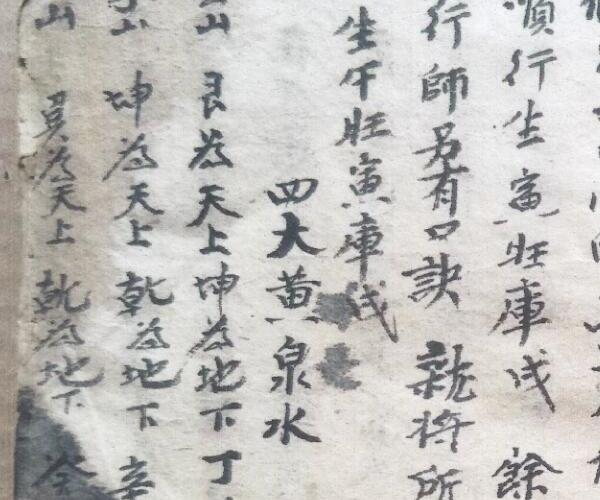 順行生寅旺庫戌 餘
行師另有口訣 就將所
生午旺寅庫戌
四大黃泉水
山 艮為天上坤為地下丁
山 坤為天上 乾為地下 辛
山 巽為天上 乾為地下 癸